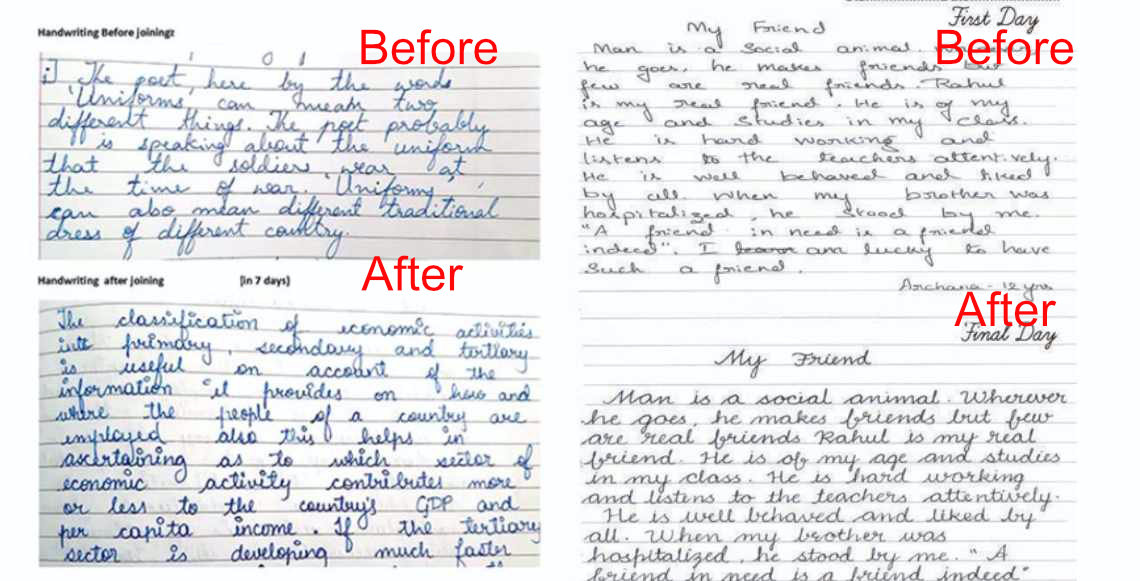 Handwriting Before joining:
Before
i] The poet, here by the words
'Uniforms, can mean two
different things. The poet probably
is speaking about the uniform
that the soldiers wear at
the time of war. 'Uniforms,'
can also mean different traditional
dress of different country.
Handwriting after joining (in 7 days)
After
The classification of economic activities
into primary, secondary and tertiary
is useful on account of the
information it provides on how and
where the people of a country are
employed also this helps in
ascertaining as to which sector of
economic activity contributes more
or less to the country's GDP and
per capita income. If the tertiary
sector is developing much faster
First Day
Before
My Friend
Man is a Social animal.
he goes, he makes friends but
few are real friends. Rahul
is my real friend. He is of my
age and Studies in my class.
He is hard working and
listens to the teachers attentively.
He is well behaved and liked
by all. When my brother was
hospitalized, he stood by me.
"A friend in need is a friend
indeed". I am lucky to have
Such a friend.
Archana - 12 yrs
After
Final Day
My Friend
Man is a social animal. Wherever
he goes, he makes friends but few
are real friends Rahul is my real
friend. He is of my age and studies
in my class. He is hard working
and listens to the teachers attentively.
He is well behaved and liked by
all. When my brother was
hospitalized, he stood by me. "A
friend in need is a friend indeed"